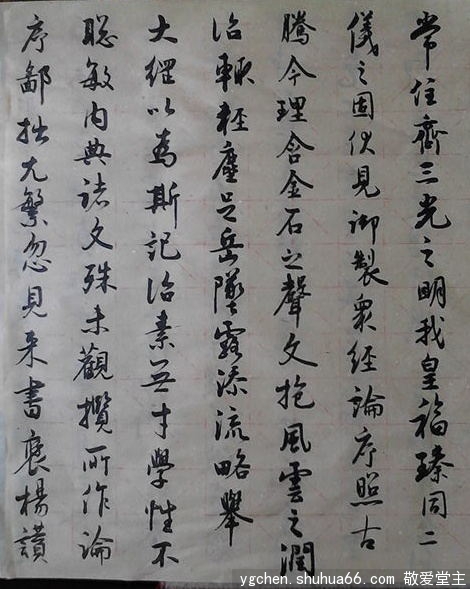 常住齊三光之明我皇福臻同二
儀之固伏見御製衆經論序照古
騰今理含金石之聲文抱風雲之潤
治輒輕塵足岳墜露添流略舉
大綱以為斯記治素無才學性不
聰敏內典諸文殊未觀攬所作論
序鄙拙尤繁忽見來書褒楊讚
ygchen.shuhua66.com 敬爱堂主